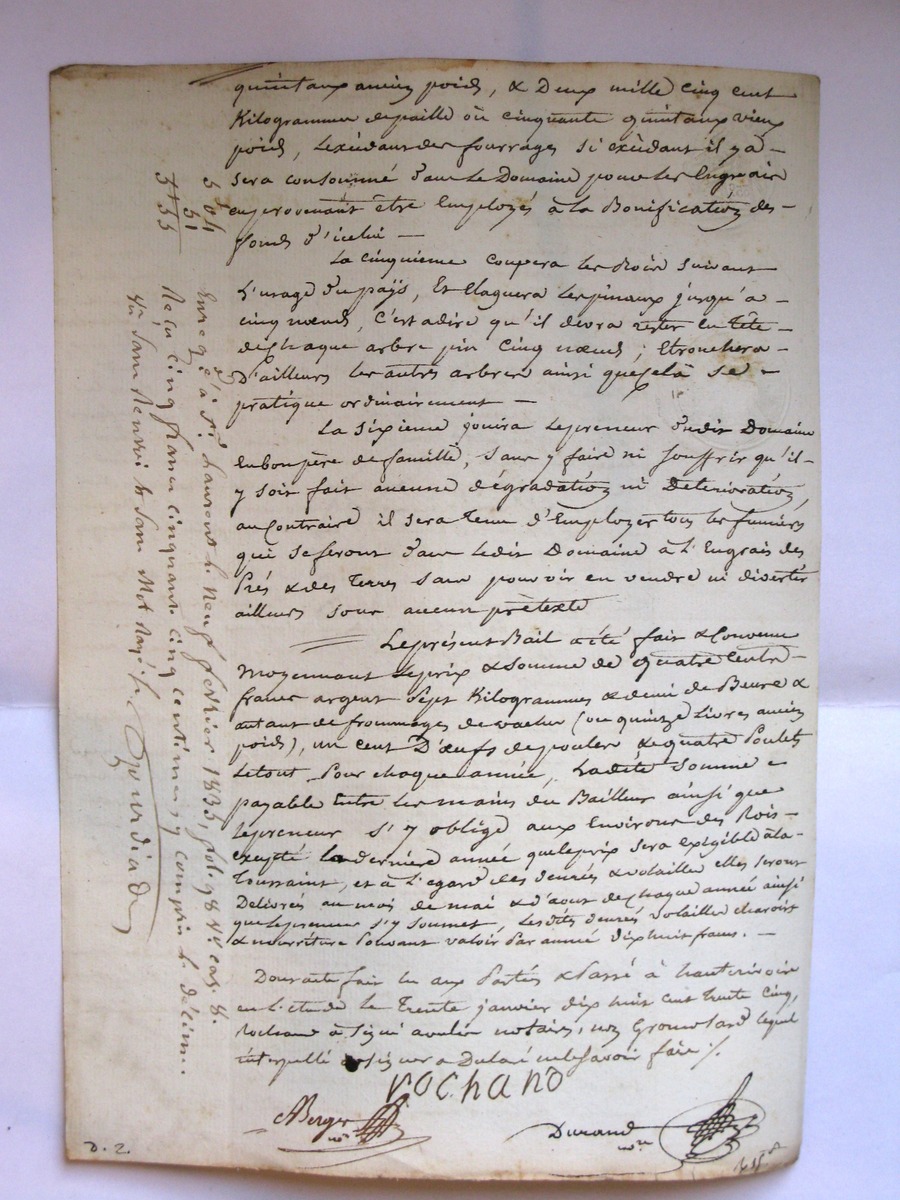 quintaux ancien poids, & Deux mille cinq cent
Kilogrammes de paille où cinquante quintaux vieux
poids, L'exédant des fourrages si exédant il y a -
sera consommé dans Le Domaine pour les Engrais
en provenant être Employés à la Bonification des -
fonds d'icelui -
La cinquieme coupera les Bois suivant
L'usage du pays, Et Elaguera les pinaux jusqu'a -
cinq nœuds, c'est adire qu'il devra rester en Tête -
de Chaque arbre pin Cinq nœuds; Etronchera -
D'ailleurs les autres arbres ainsi que Cela se -
pratique ordinairement -
La sixieme jouira Le preneur dudit Domaine
En bon père de famille, sans y faire ni souffrir qu'il -
y soit fait aucune dégradation ni Deterioration,
au Contraire il sera tenu d'Employer tous les fumiers
qui se feront dans Ledit Domaine à L'Engrais des
Prés & des Terres sans pouvoir en vendre ni divertir
ailleurs sous aucun prétexte
Le présent Bail a été fait & Convenu
Moyennant Le prix & somme de quatre Cents -
francs argent sept Kilogrammes & demi de Beure &
autant de frommages de vache (ou quinze Livres ancien
poids), un cent D'œufs de poules & quatre Poulets
Le tout Pour chaque année, Ladite somme -
payable Entre Les mains du Bailleur ainsi que
Le preneur s'y oblige aux Environs des Rois -
excepté la derniere année que le prix sera exigible à la -
Toussaint, et à L'égard des denrées & volaille elles seront
Délivrés au mois de mai & d'aout de Chaque année ainsi
que Le preneur s'y soumet. Les dites denrées Volailles charois
& nourriture Pouvant valoir Par année dix huit francs. -
Dont acte fait lu aux Parties & Passé à hauterivoire
en L'étude le Trente janvier dix huit cent trente Cinq,
Rochand à signé avec les notaires, non Lequel
interpellé de signer a Déclaré ne le savoir faire /.
rochand
ABerger
nre
Durand
nre
D. 2.
5 04
51
5+55
Enregé à St. Laurent le neuf février 1835, fol. 98 vo. cas. 8.
Reçu cinq francs cinquante cinq centimes y compris le décime